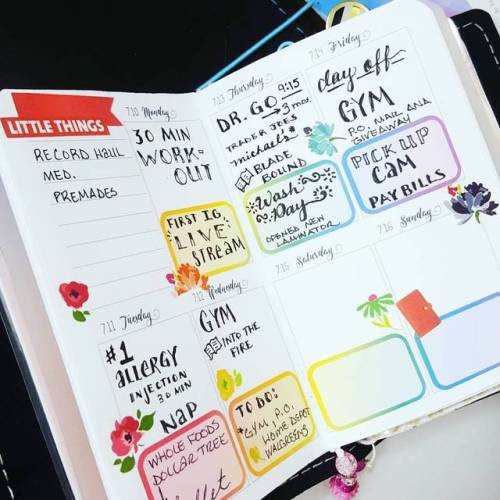 LITTLE THINGS
RECORD HAUL
MED.
PREMADES
7.10 Monday
30 MIN
WORK-
OUT
FIRST IG
LIVE
STREAM
7.11 Tuesday
#1
ALLERGY
INJECTION
30 MIN
NAP
WHOLE FOODS
DOLLAR TREE
7.12 Wednesday
GYM
INTO THE
FIRE
TO DO:
*GYM, P.O.
HOME DEPOT
WALGREENS
7.13 Thursday
DR. GO 9:15
→ 3 mo.
TRADER JOES
michaels*
BLADE
BOUND
Wash
Day
OPENED NEW
LAMINATOR
7.14 Friday
day off
GYM
P.O. MAIL ANA
GIVEAWAY
PICK UP
CAM
PAY BILLS
7.15 Saturday
7.16 Sunday